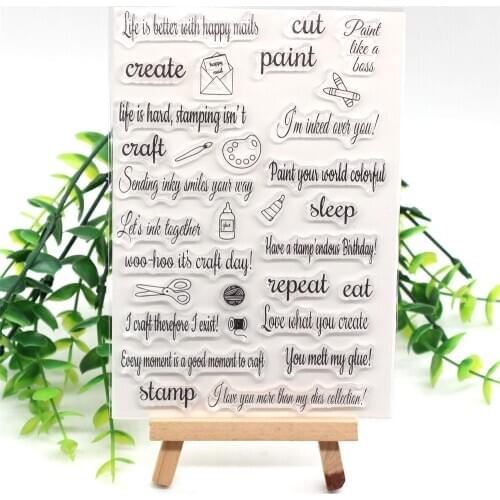 Life is better with happy mails
cut
Paint
like a
boss
create
happy
mail
paint
life is hard, stamping isn't
I'm inked over you!
craft
Sending inky smiles your way
Paint your world colorful
sleep
Let's ink together
glue
Have a stamp endous Birthday!
woo-hoo it's craft day!
repeat
eat
I craft therefore I exist!
Love what you create
Every moment is a good moment to craft
You melt my glue!
stamp
I love you more than my dies collection!